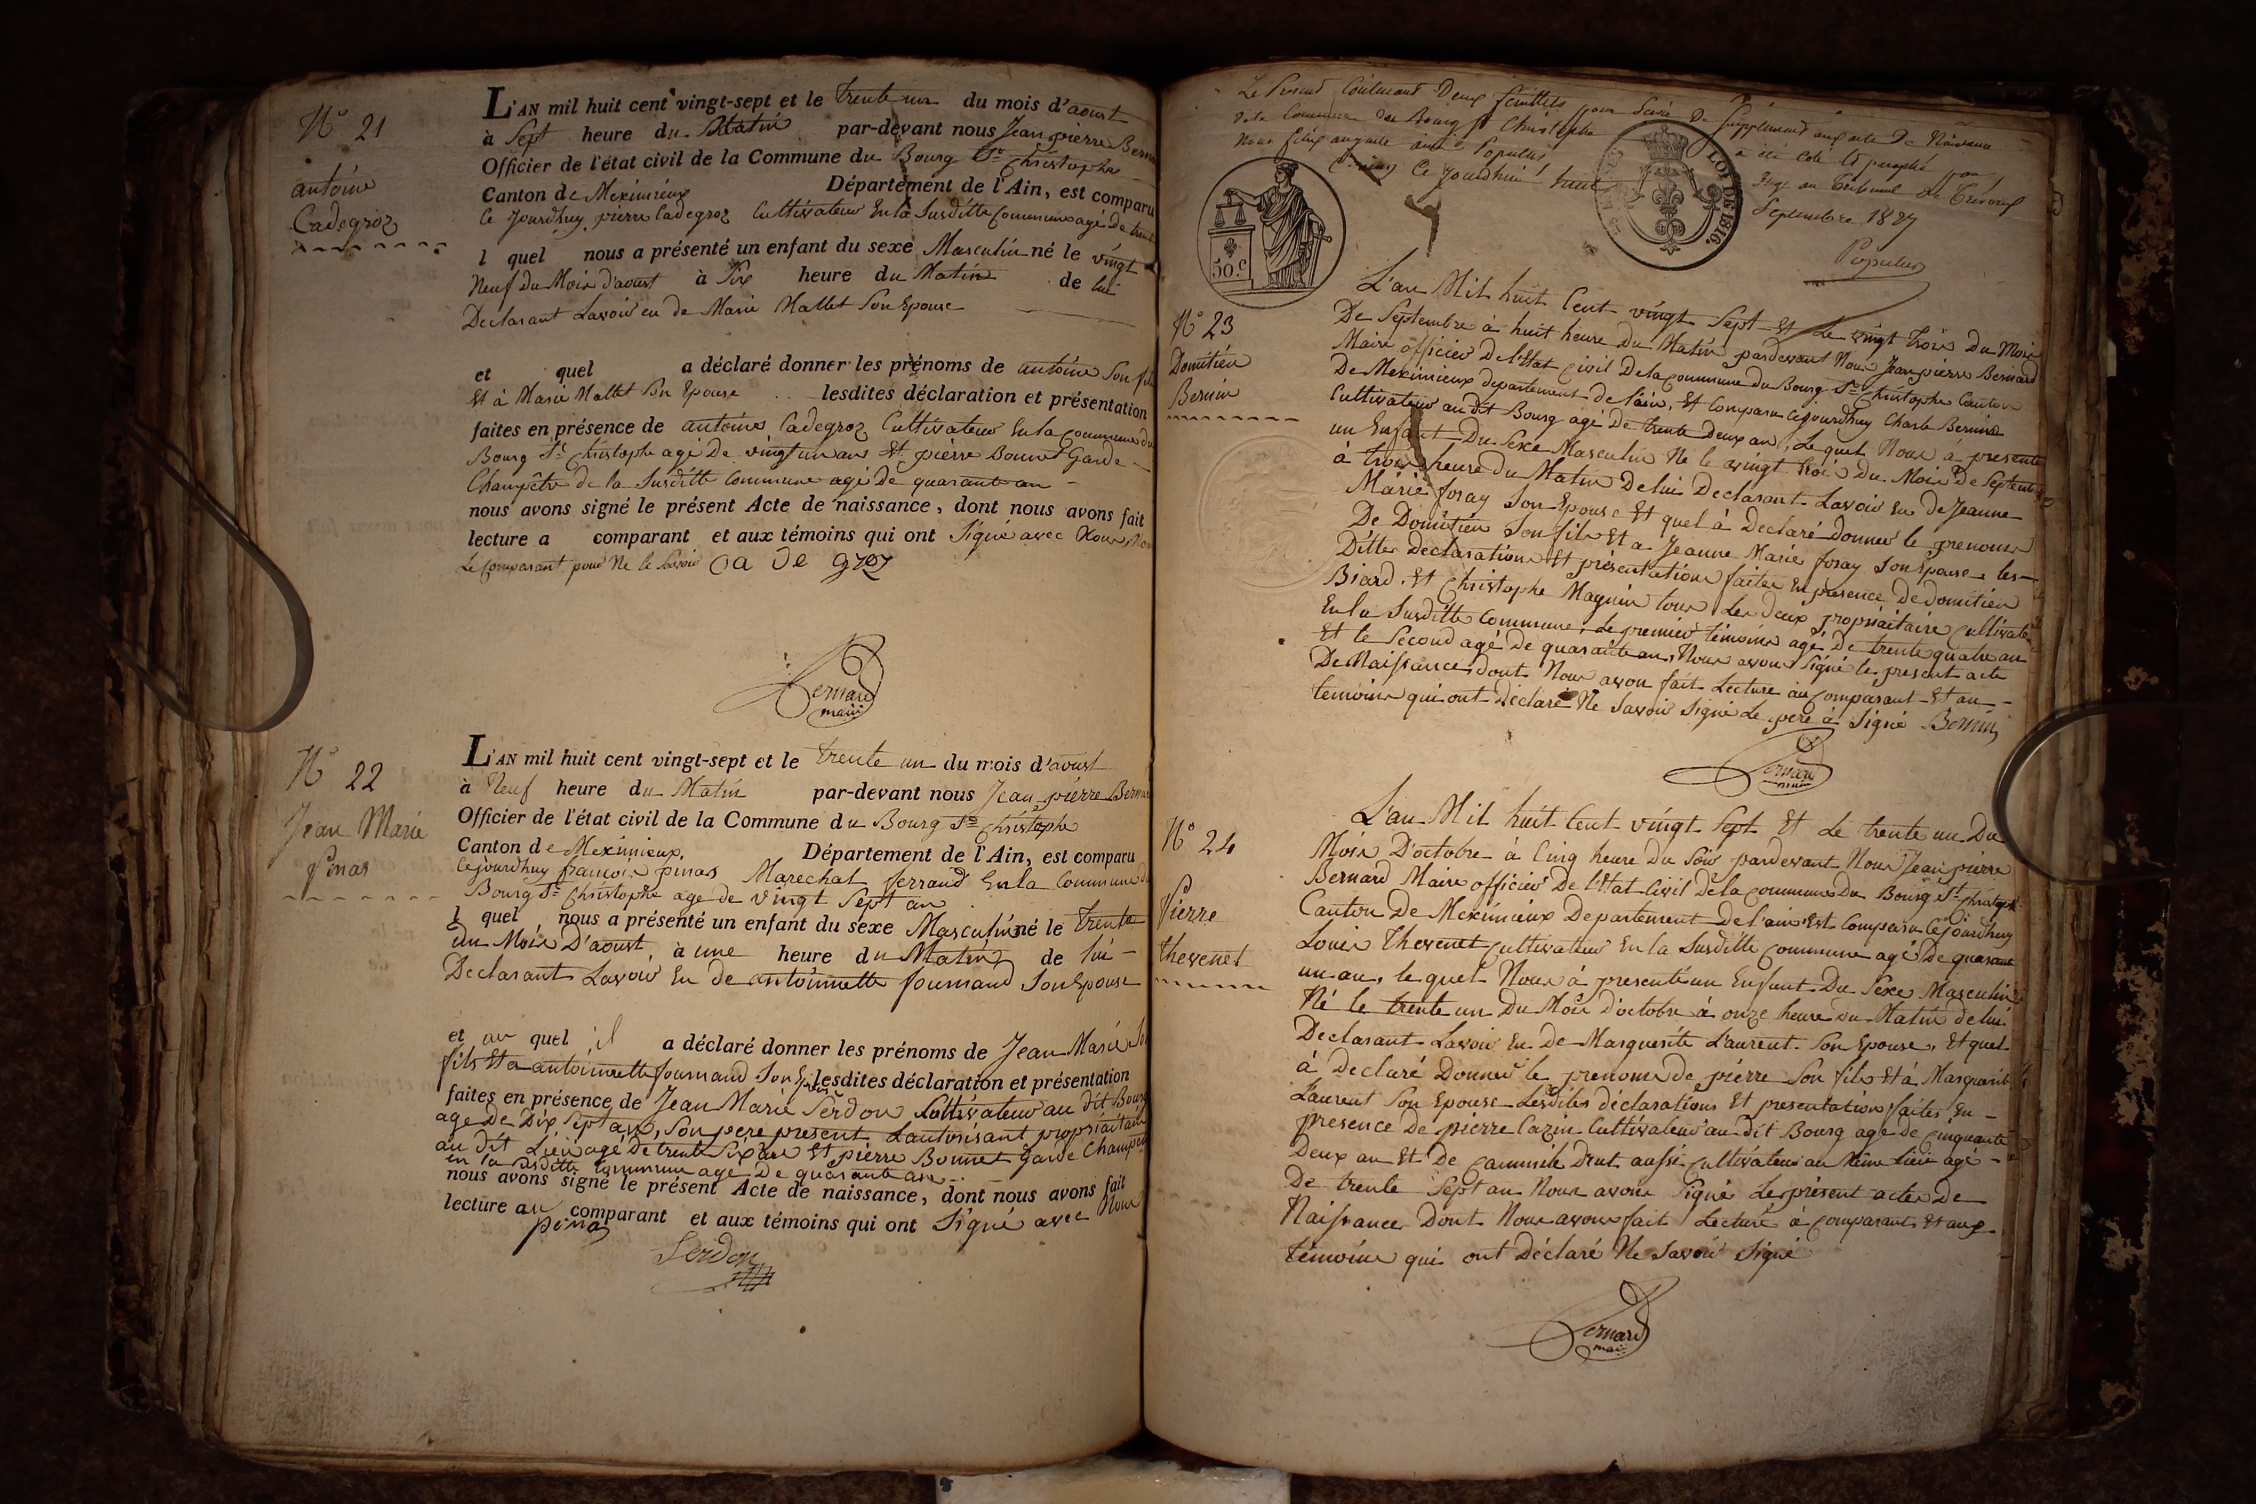 N° 21
antoine
Cadegroz
L'AN mil huit cent vingt-sept et le trente un du mois d'aoust
à Sept heure du Matin par-devant nous Jean pierre Bernard
Officier de l'état civil de la Commune du Bourg St Christophe
Canton de Meximieux Département de l'Ain, est comparu
Ce jourdhuy pierre Cadegroz Cultivateur En la Susditte Commune agé de trente
l quel nous a présenté un enfant du sexe Masculin né le vingt
Neuf du Mois d'aoust à Six heure du Matin de lui
Declarant Lavoir eu de Marie Mallet Son Epouse
et quel a déclaré donner les prénoms de antoine Son fils
Et à Marie Mallet Son Epouse lesdites déclaration et présentation
faites en présence de antoine Cadegroz Cultivateur En la Commune du
Bourg St Christophe agé De vingt un an Et pierre Bonnet Garde
Champêtre de la Susditte Commune agé de quarante an
nous avons signé le présent Acte de naissance, dont nous avons fait
lecture a comparant et aux témoins qui ont Signé avec Nous Non
Le Comparant pour Ne le Savoir Ca de groz
Bernard
maire
N° 22
Jean Marie
Pinas
L'AN mil huit cent vingt-sept et le trente un du mois d'aoust
à Neuf heure du Matin par-devant nous Jean pierre Bernard
Officier de l'état civil de la Commune du Bourg St Christophe
Canton de Meximieux. Département de l'Ain, est comparu
Cejourdhuy francois pinas Marechal ferrand En la Commune du
Bourg St Christophe age de vingt Sept an
l quel nous a présenté un enfant du sexe Masculin né le trente
un Mois D'aoust à une heure du Matin de lui
Declarant Lavoir Eu de antoinette fournand Son Epouse
et au quel il a déclaré donner les prénoms de Jean Marie Son
fils Et a antoinette fournand Son Epouse lesdites déclaration et présentation
faites en présence de Jean Marie Serdon Cultivateur au dit Bourg
age De Dix Sept an, Son pere present Lautorisant propriaitaire
au dit Lieu agé De trente Six an Et pierre Bonnet Garde Champetre
en la susditte Commune age De quarante an
nous avons signé le présent Acte de naissance, dont nous avons fait
lecture au comparant et aux témoins qui ont Signé avec Nous
pinas
Serdon
Le Present Contenant Deux feuillets pour Servir De Supplement aux acte De Naissance
de la Commune du Bourg St Christophe a été coté et paraphé par
Nous félix auguste aimé Populus Juge au Tribunal de Trévoux
Ce jourdhui trente Septembre 1827
Populus
50.c
LOI DE 1816.
N° 23
Domitien
Bernin
L'an Mil huit Cent vingt Sept Et Le vingt trois Du Mois
De Septembre à huit heure Du Matin pardevant Nous Jean pierre Bernard
Maire officier De l'Etat Civil De la Commune du Bourg St Christophe Canton
De Meximieux departement de l'ain, Et Comparu Cejourdhuy Charle Bernin
Cultivateur au Dit Bourg agé De trente Deux an, Le quel Nous à presenté
un Enfant Du Sexe Masculin Né le vingt trois Du Mois De Septembre
à trois heure Du Matin De lui Declarant Lavoir Eu De Jeanne
Marie foray Son Epouse Et quel à Declaré Donner le prenoms
De Domitien Son fils Et a Jeanne Marie foray Son Epouse les
Dittes Declarations Et présentations faites En présence De Domitien
Biard. Et Christophe Magnin tous Les deux propriaitaire Cultivateur
En la Susditte Commune, Le premier témoins agé De trente quatre an
Et le Second agé de quarante an, Nous avons Signé le present acte
De Naissance dont Nous avon fait Lecture au Comparant Et au
temoins qui ont Déclaré Ne Savoir Signé Le pere à Signé Bernin
Bernard
maire
N° 24
Pierre
thevenet
L'an Mil huit Cent vingt Sept Et Le trente un Du
Mois D'octobre à Cinq heure Du Soir pardevant Nous Jean pierre
Bernard Maire officier De l'Etat Civil De la Commune Du Bourg St Christophe
Canton De Meximieux Departement De l'ain Est Comparu Cejourdhuy
Louis Thevenet Cultivateur En la Susditte Commune agé De quarante
un an, le quel Nous à presenté un Enfant Du Sexe Masculin
Né le trente un Du Mois D'octobre à onze heure du Matin de lui
Declarant Lavoir Eu De Marguerite Laurent Son Epouse, Et quel
à Declaré Donner le prenoms de pierre Son fils Et à Marguerite
Laurent Son Epouse Lesdites déclarations Et presentation faites En
presence De pierre Cazin Cultivateur au Dit Bourg age De Cinquante
Deux an Et De Drut aussi Cultivateur au Même Lieu agé
De trente Sept an Nous avons Signé Le présent actes De
Naissance Dont Nous avons fait Lecture à Comparant Et aux
témoins qui ont Déclaré Ne Savoir Signé
Bernard
maire